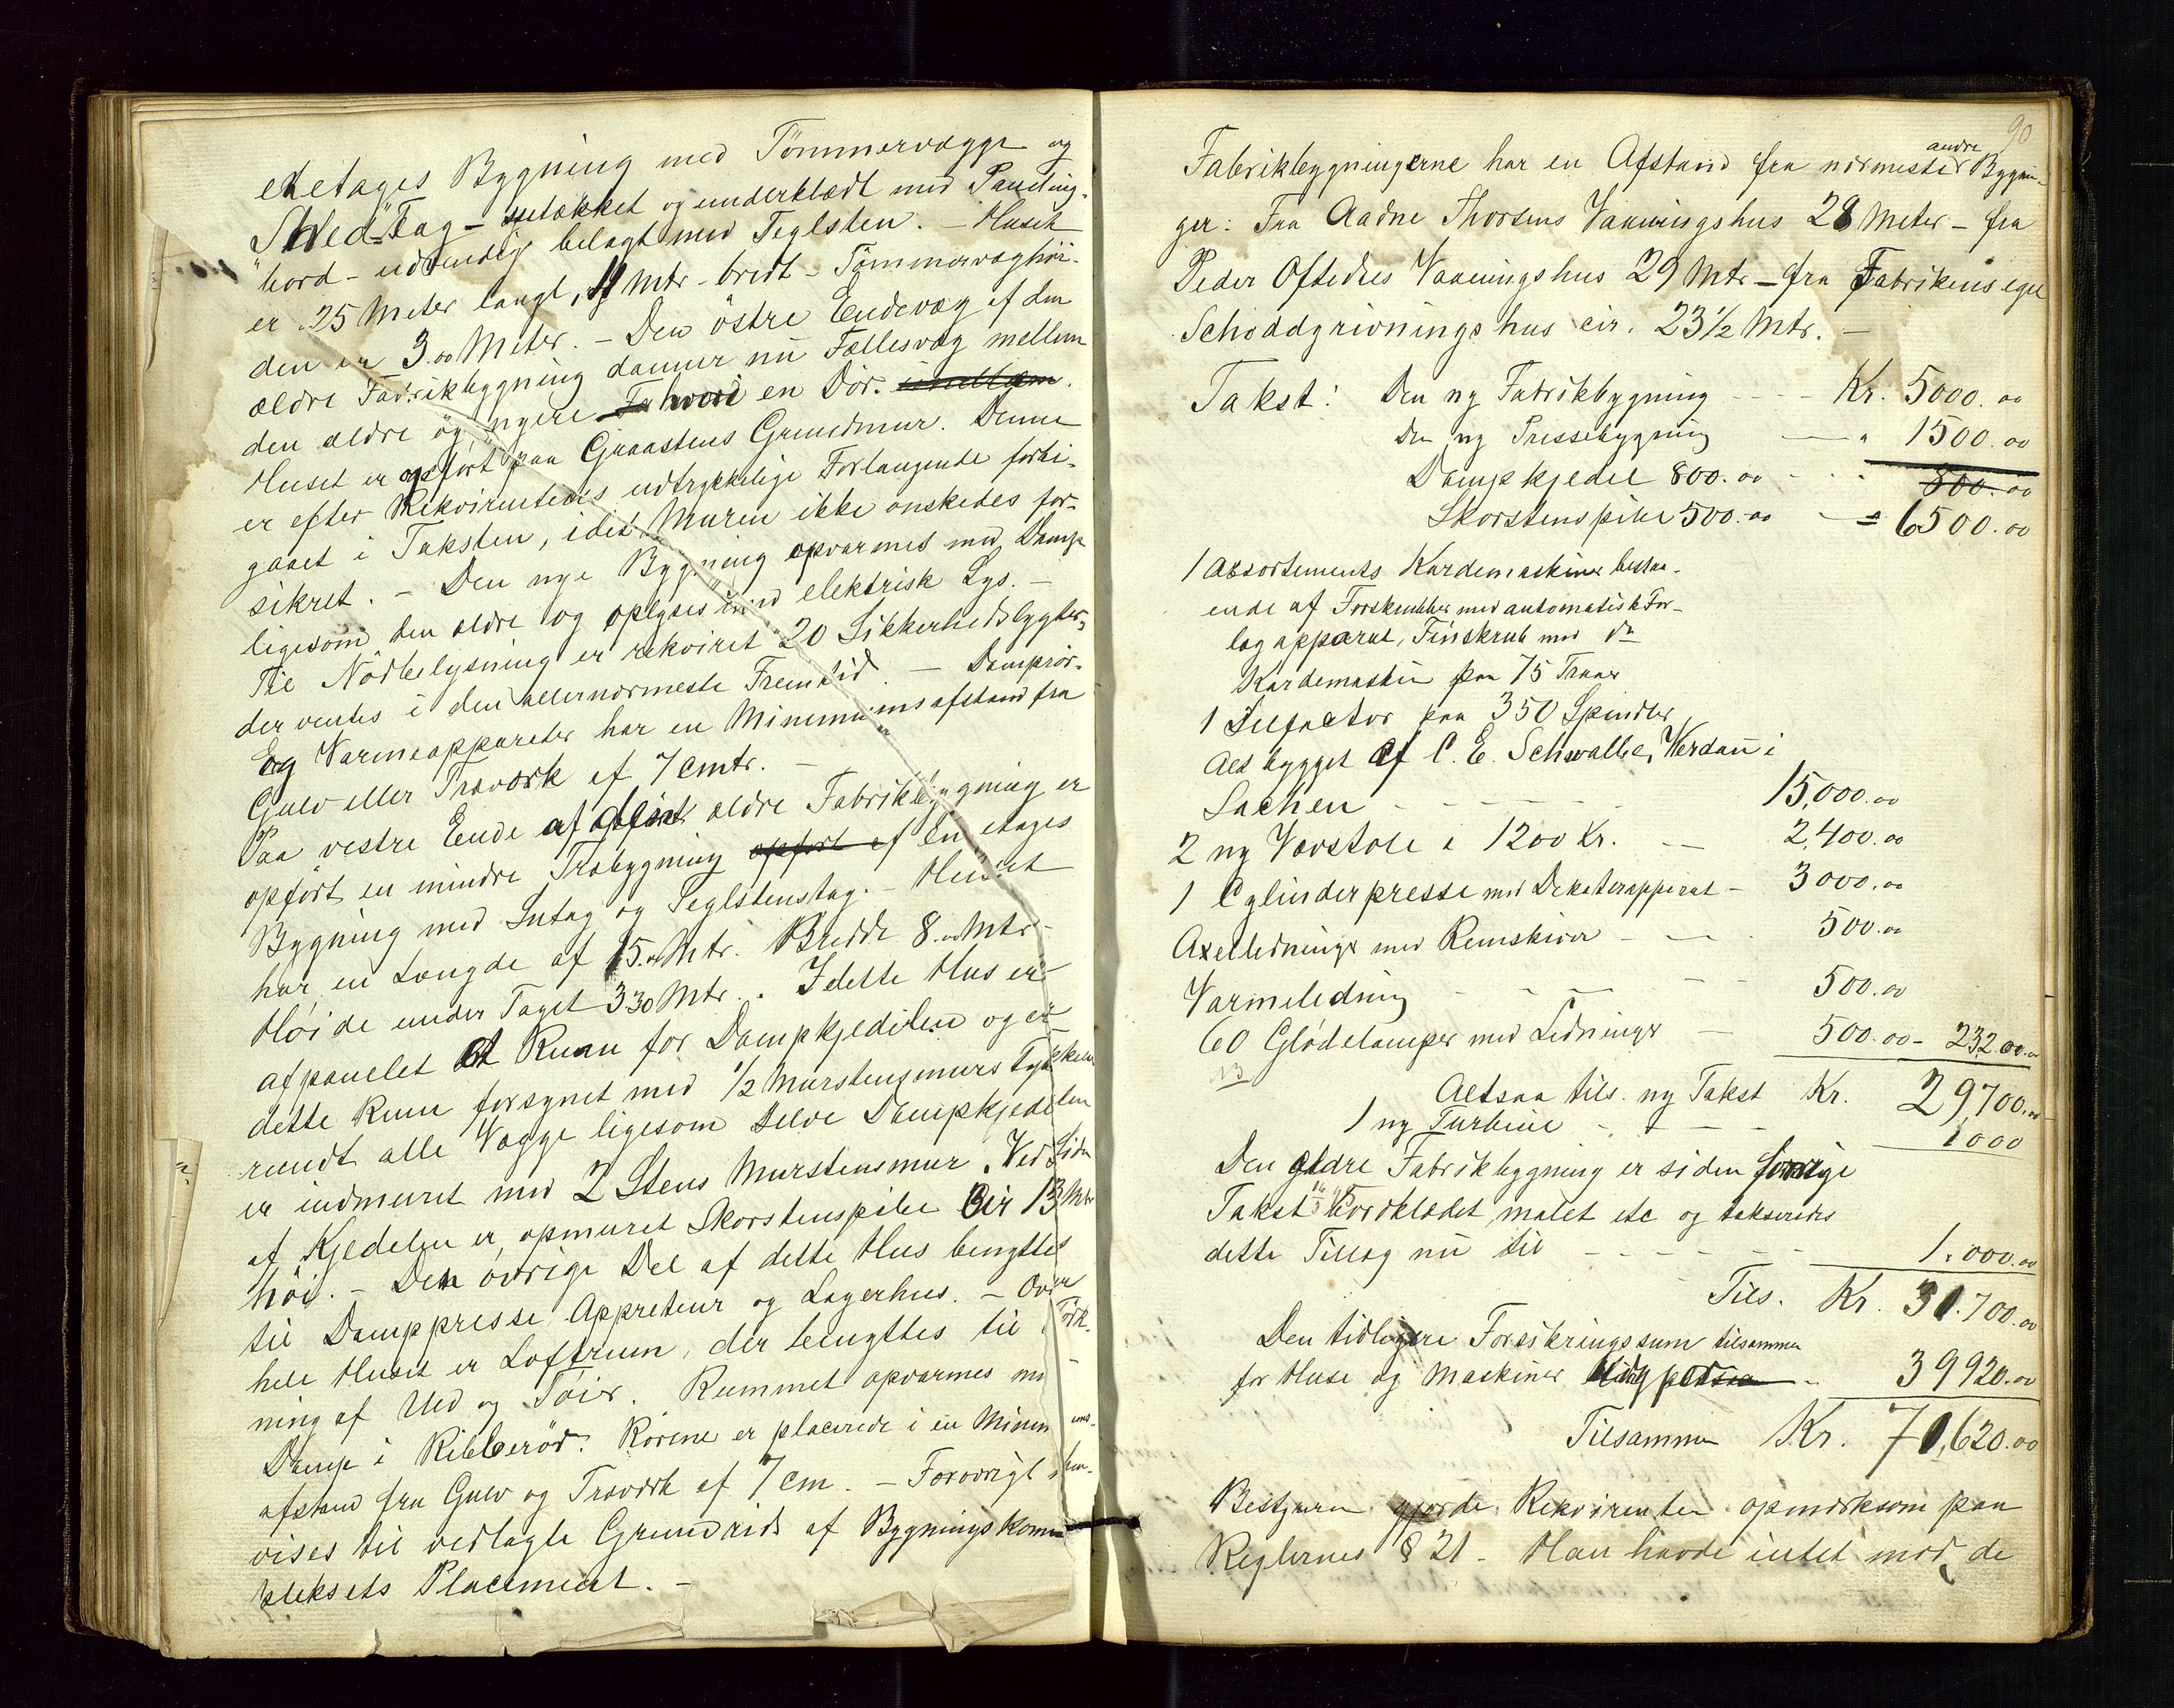 enetages Bygning med Tömmervægge og
"Shed"-Tag - tækket og underklædt med Paneling-
bord - udvendig belagt med Teglsten. - Huset
er 25 Meter langt, 11 Mtr. bredt - Tömmervæghöi-
den er 3.00 Meter. - Den östre Endevæg af den
ældre Fabrikbygning danner nu Fællesvæg mellem
den ældre og nyere hvori en Dör.
Huset er opfört paa Graastens Grundmur. Denne
er efter Rekvirentens udtrykkelige Forlangende forbi-
gaaet i Taksten, idet Muren ikke önskedes for-
sikret. - Den nye Bygning opvarmes med Damp
ligesom den ældre og oplyses med elektrisk Lys. -
Til Nödbelysning er rekviret 20 Sikkerhedslygter,
der ventes i den allernærmeste Fremtid. - Damprör-
og Varmeapparater har en Minimumsafstand fra
Gulv eller Træværk af 7 cmtr. -
Paa vestre Ende af den ældre Fabrikbygning er
opfört en mindre Træbygning opfört af En etages
Bygning med Sutag og Teglstenstag. - Huset
har en Længde af 15.00 Mtr. Bredde 8.00 Mtr -
Höide under Taget 3.30 Mtr. . I dette Hus er
afpanelet et Rum for Dampkjedelen og er
dette Rum forsynet med 1/2 Murstensmurs Tykkelse
rundt alle Vægge ligesom selve Dampkjedelen
er indmuret med 2 Stens Murstensmur. Ved Siden
af Kjedelen er opmuret Skorstenspibe Cir 13 Mtr
höi. - Den övrige Del af dette Hus benyttes
til Damppresse Appretur og Lagerhus. - Over
hele Huset er Loftrum, der benyttes til Törk-
ning af Uld og Töier. Rummet opvarmes med
Damp i Ribberör. Rörene er placerede i en Minimums-
afstand fra Gulv og Træværk af 7 cm. - Forövrigt hen-
vises til vedlagte Grundrids af Bygningskom-
pleksets Placement. -
90
Fabrikbygningerne har en Afstand fra nærmeste andre Bygnin-
ger: Fra Aadne Thorsens Vaaningshus 28 Meter - fra
Peder Oftedals Vaaningshus 29 Mtr - fra Fabrikens eget
Schoddyrivningshus cir. 23 1/2 Mtr. -
Takst: Den ny Fabrikbygning - - - - Kr. 5000.00
Den ny Pressebygning — " 1500.00
Dampkjedel 800.00 - - - 800.00
Skorstenspibe 500.00 - = 6500.00
1 Assortements Kardemaskiner bestaa-
ende af Forskrubber med automatisk For-
lagapparat, Finskrub med do
Kardemaskin paa 75 Traar
1 Selfactor paa 350 Spindler
Alt bygget af C. E. Schwalbe, Werdau i
Sachen - - - - - 15,000.00
2 ny Vævstole à 1200 Kr. - - 2,400.00
1 Cylinderpresse med Dekaterapparat - 3000.00
Axelledninge med Remskiver - - - 500.00
Varmeledning - - - - 500.00
60 Glödelamper med Ledninger - 500.00 - 23200.00
Altsaa tils. ny Takst Kr. 29,700.00
1 ny Turbine - - - 1000
Den ældre Fabrikbygning er siden forrige
Takst bordklædet, malet etc og takseredes
dette Tillæg nu til - - - - - - 1.000.00
Tils. Kr. 31.700.00
Den tidligere Forsikringssum tilsammen
for Huse og Maskiner - 39920.00
Tilsammen Kr. 71,620.00
Bestyreren gjorde Rekvirenten opmærksom paa
Reglernes § 21 - Han havde intet mod de